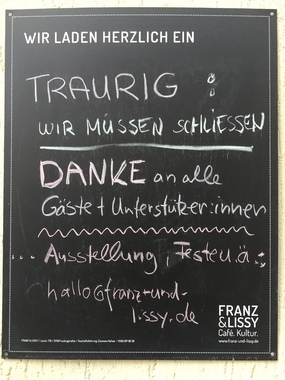 WIR LADEN HERZLICH EIN
TRAURIG :
WIR MÜSSEN SCHLIESSEN
DANKE an alle
Gäste + Unterstützer:innen
... Ausstellung, Festeu.ä...
hallo@franz-und-
lissy.de
FRANZ
&LISSY
Café. Kultur.
www.franz-und-lissy.de